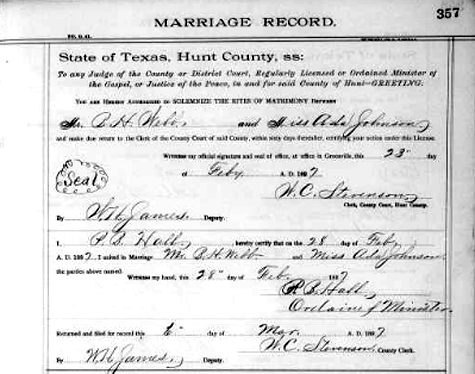 357
MARRIAGE RECORD.
State of Texas, Hunt County, ss:
To any Judge of the County or District Court, Regularly Licensed or Ordained Minister of
the Gospel, or Justice of the Peace, in and for said County of Hunt—GREETING:
YOU ARE HEREBY AUTHORIZED TO SOLEMNIZE THE RITES OF MATRIMONY BETWEEN
Mr. B. H. Webb and Miss Ada Johnson
and make due return to the Clerk of the County Court of said County, within sixty days thereafter, certifying your action under this License.
WITNESS my official signature and seal of office, at office in Greenville, this 23" day
of Feby A. D. 1897
Seal
W. C. Stevenson,
Clerk, County Court, Hunt County.
By W. H. James, Deputy.
I P. B. Hall, hereby certify that on the 28 day of Feb,
A. D. 1897, I united in Marriage Mr. B. H. Webb and Miss Ada Johnson
the parties above named. WITNESS my hand, this 28" day of Feb, 1897
P. B. Hall,
Ordained Minister
Returned and filed for record this day of Mar, A. D. 1897
W. C. Stevenson, County Clerk.
By W. H. James, Deputy.